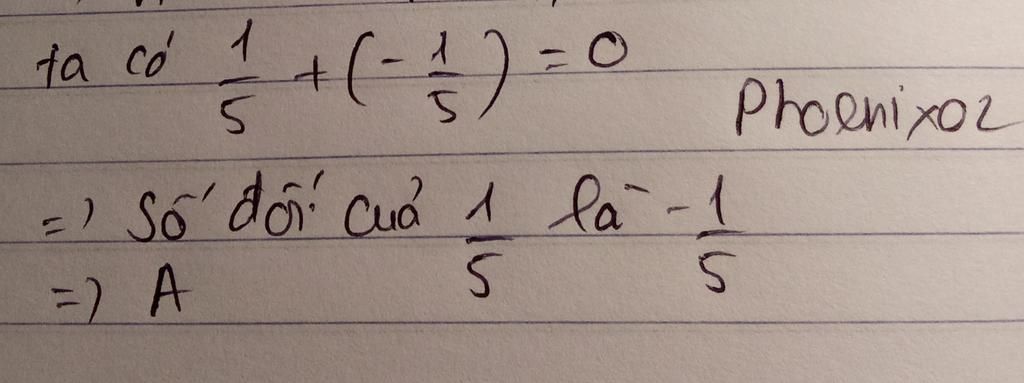 ta có 1/5 + (-1/5) = 0
Phoenix02
=> Số đối của 1/5 là -1/5
=> A